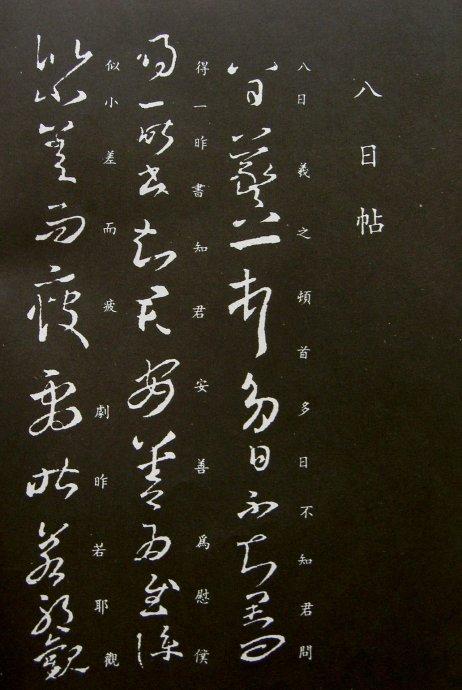 八日帖
八日羲之頓首多日不知君問
八日羲之頓首多日不知君問
得一昨書知君安善爲慰僕
得一昨書知君安善爲慰僕
似小差而疲劇昨若耶觀
似小差而疲劇昨若耶觀